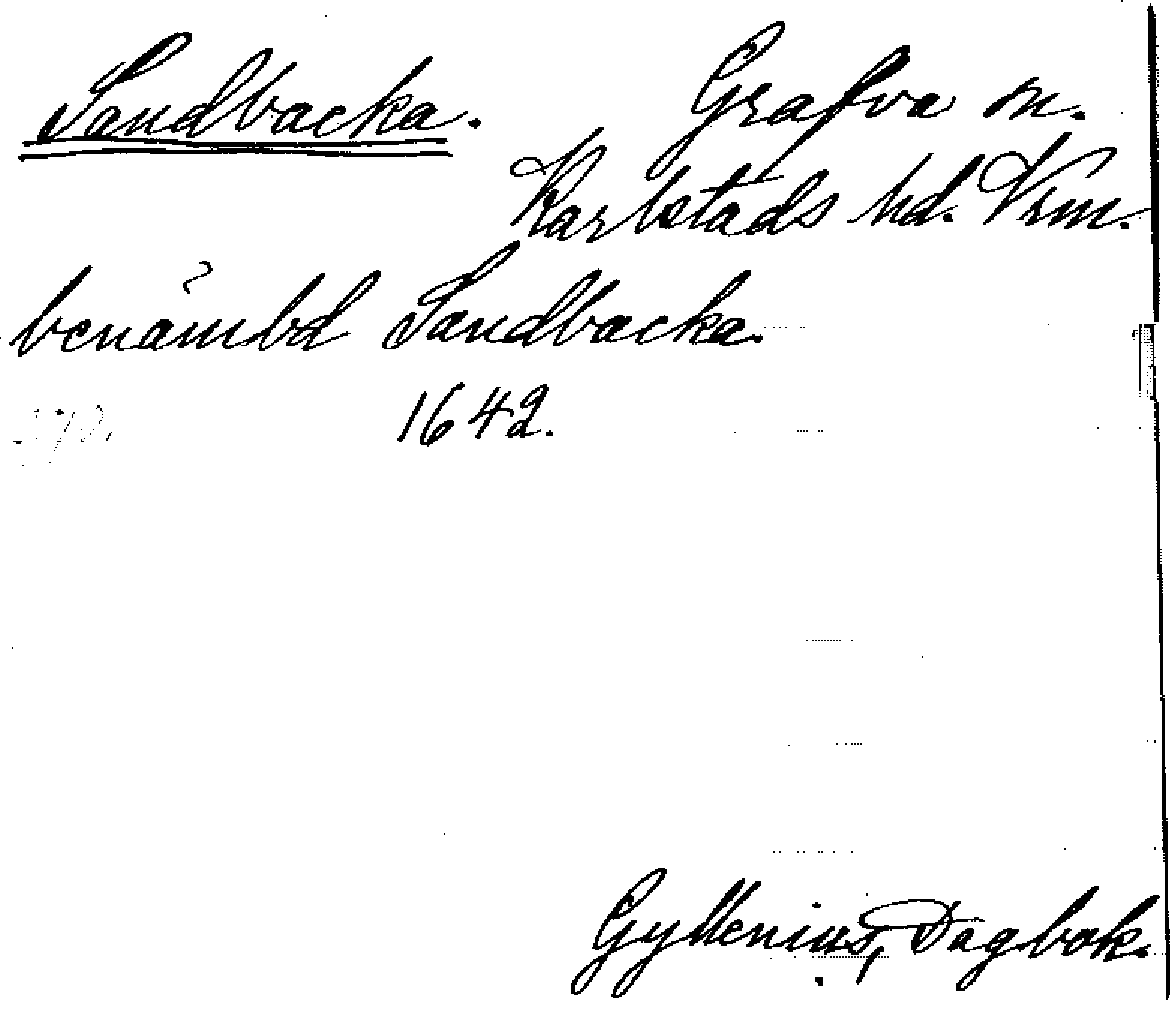 Sandbacka. Grafva sn.
Karlstads hd. Vrm.
benämbd Sandbacka.
1642.
Gyllenius, Dagbok.